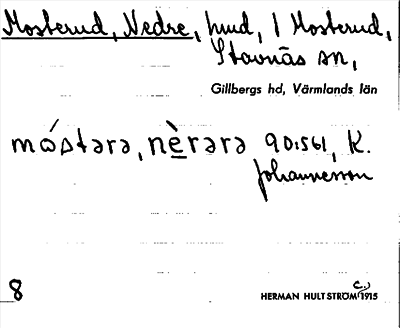 Mosterud, Nedre, hmd, 1 Mosterud,
Stavnäs sn,
Gillbergs hd, Värmlands län
mós​tərə, nèrərə 90:561, K.
Johannesson
8
HERMAN HULTSTRÖM 1915